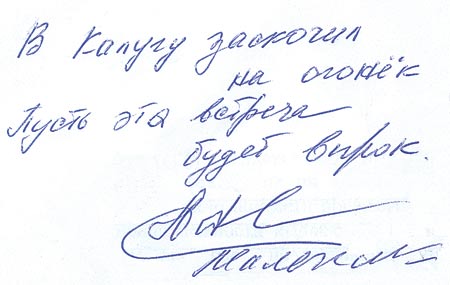 В Калугу заскочил
на огонёк
Пусть эта встреча
будет впрок.